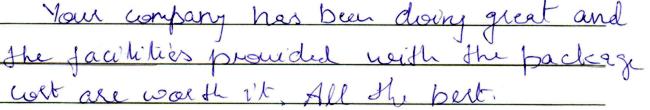 Your company has been doing great and
the facilities provided with the package
cost are worth it. All the best.